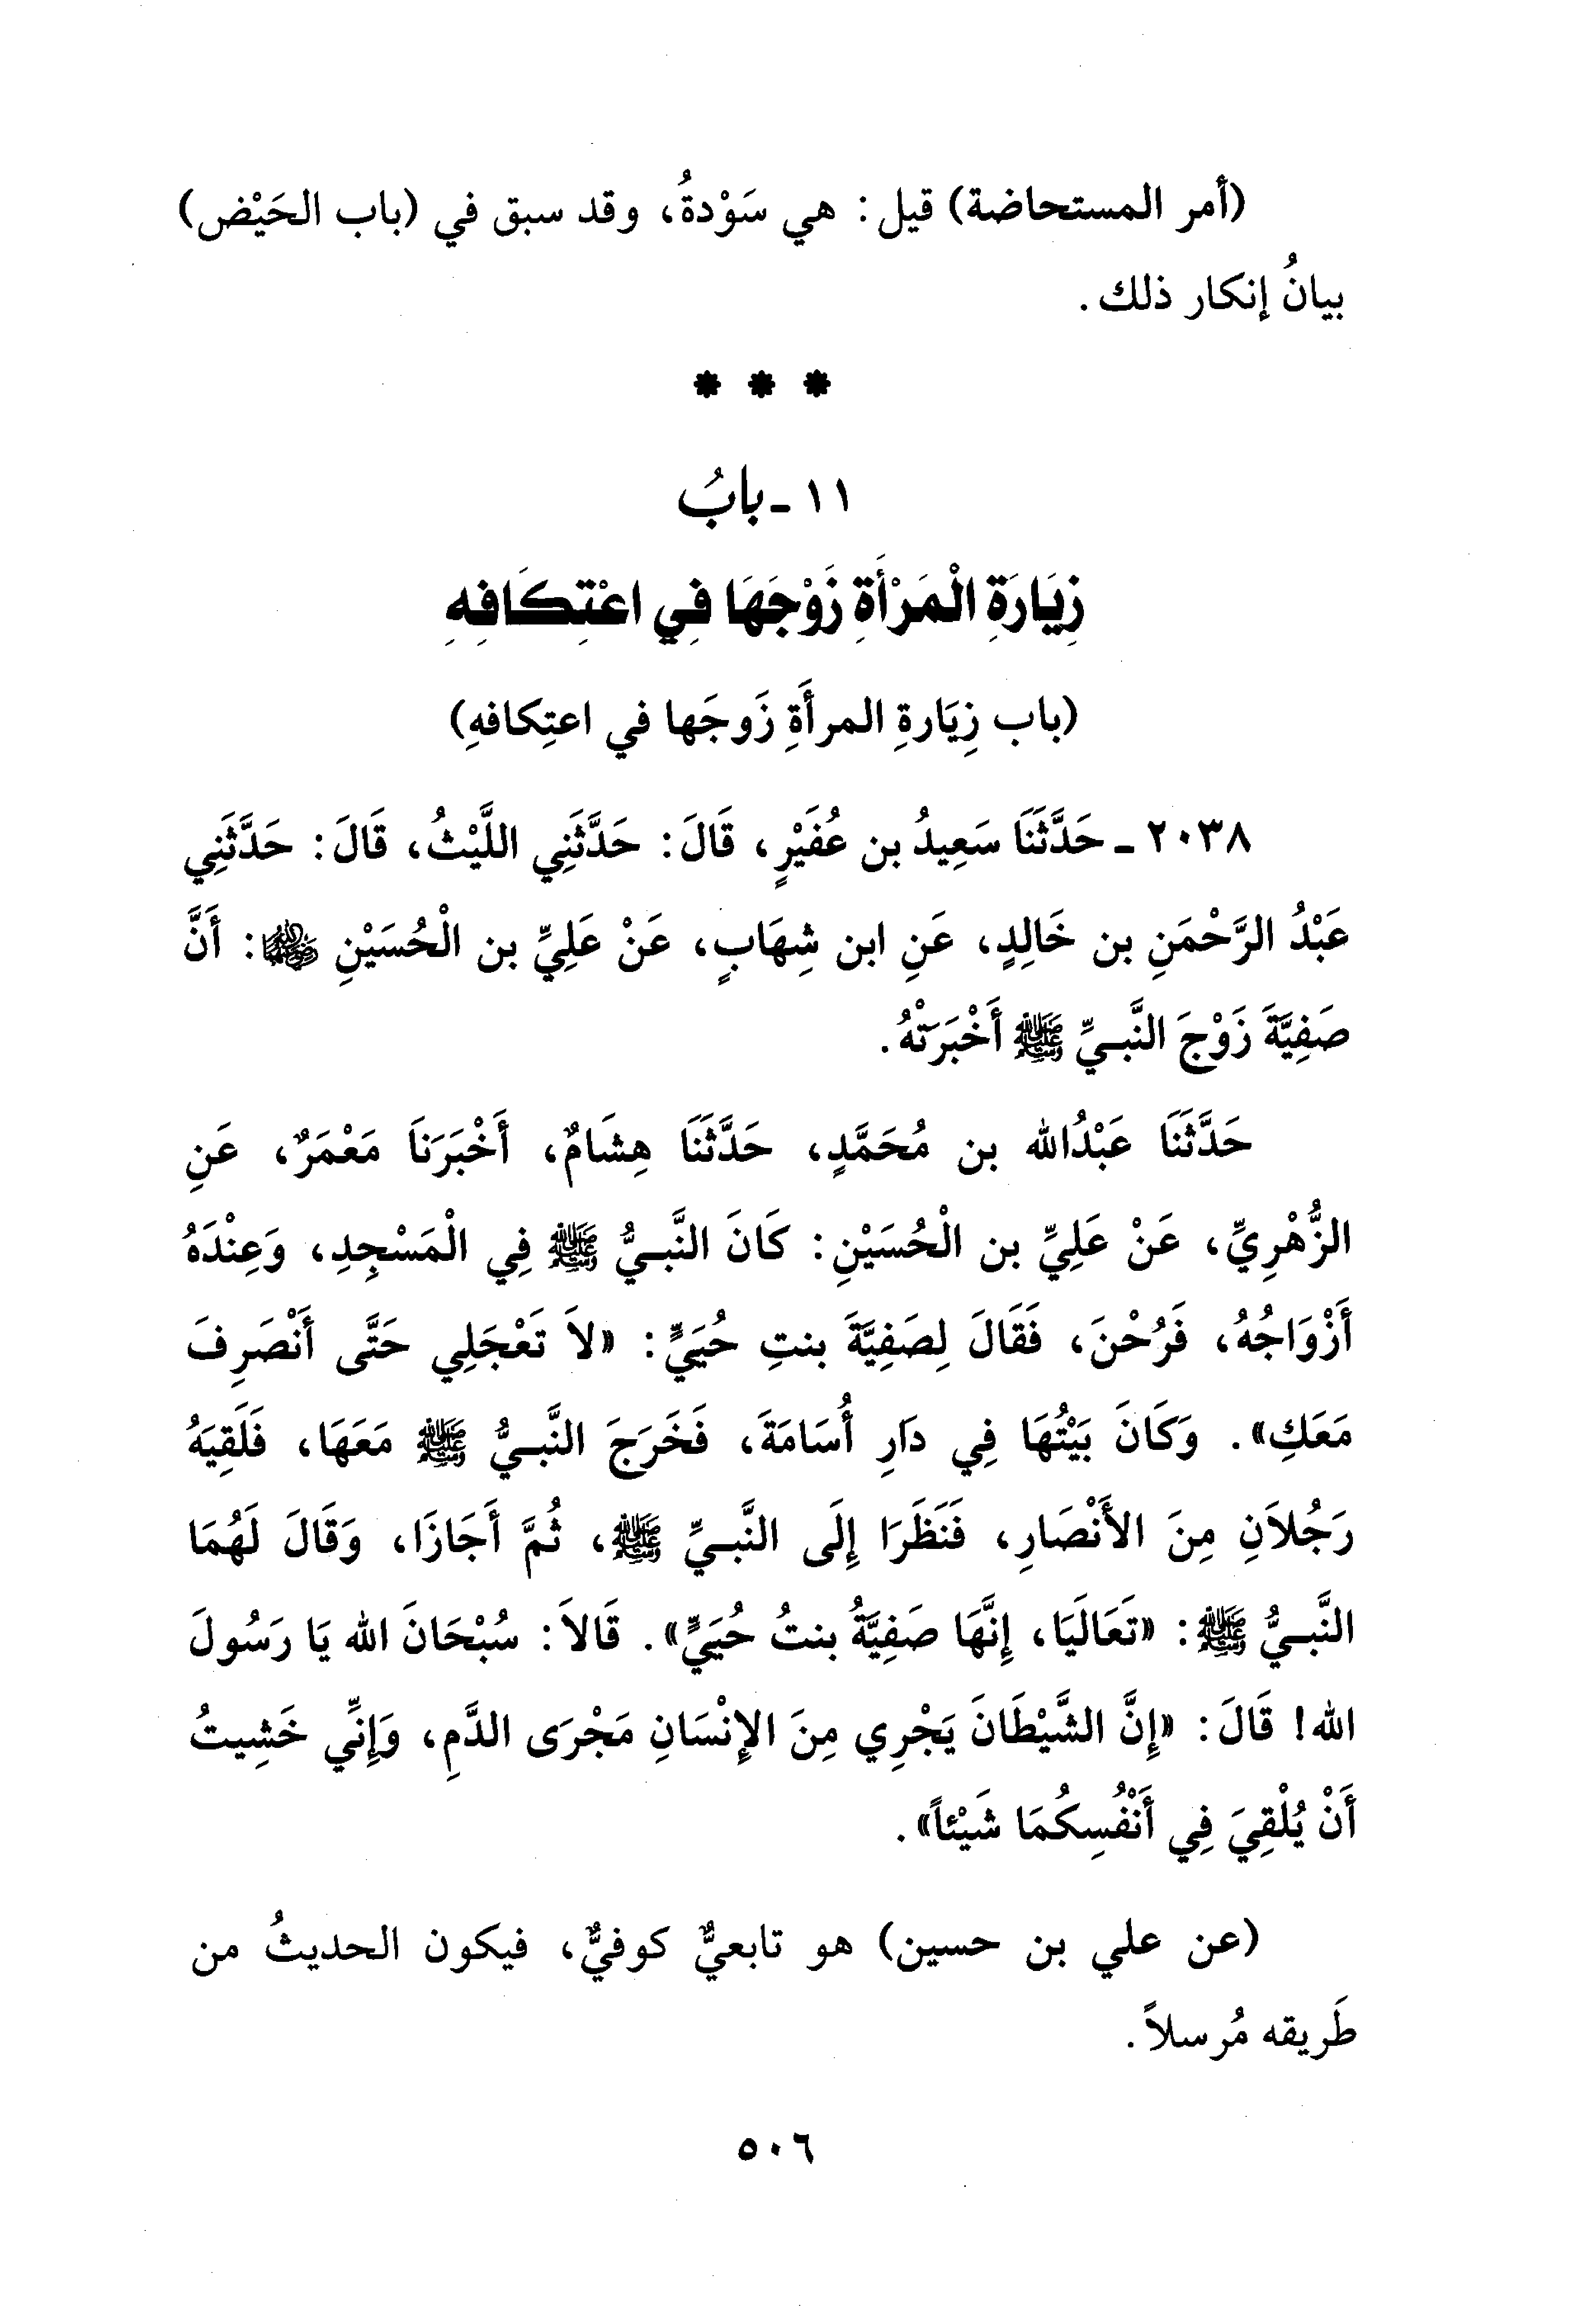 (أمر المستحاضة) قيل: هي سَوْدةُ، وقد سبق في (باب الحَيْض)
بيانُ إنكار ذلك.
* * *
١١ ـ بابُ
زِيَارَةِ الْمَرْأَةِ زَوْجَهَا فِي اعْتِكَافِهِ
(باب زِيَارةِ المرأَةِ زَوجَها في اعتِكافهِ)
٢٠٣٨ ـ حَدَّثَنَا سَعِيدُ بن عُفَيْرٍ، قَالَ: حَدَّثَنِي اللَّيْثُ، قَالَ: حَدَّثَنِي
عَبْدُ الرَّحْمَنِ بن خَالِدٍ، عَنِ ابن شِهَابٍ، عَنْ عَلِيِّ بن الْحُسَيْنِ ﵄: أَنَّ
صَفِيَّةَ زَوْجَ النَّبِيِّ ﷺ أَخْبَرَتْهُ.
حَدَّثَنَا عَبْدُالله بن مُحَمَّدٍ، حَدَّثَنَا هِشَامٌ، أَخْبَرَنَا مَعْمَرٌ، عَنِ
الزُّهْرِيِّ، عَنْ عَلِيِّ بن الْحُسَيْنِ: كَانَ النَّبِيُّ ﷺ فِي الْمَسْجِدِ، وَعِنْدَهُ
أَزْوَاجُهُ، فَرُحْنَ، فَقَالَ لِصَفِيَّةَ بنتِ حُيَيٍّ: «لاَ تَعْجَلِي حَتَّى أَنْصَرِفَ
مَعَكِ». وَكَانَ بَيْتُهَا فِي دَارِ أُسَامَةَ، فَخَرَجَ النَّبِيُّ ﷺ مَعَهَا، فَلَقِيَهُ
رَجُلاَنِ مِنَ الأَنْصَارِ، فَنَظَرَا إِلَى النَّبِيِّ ﷺ، ثُمَّ أَجَازَا، وَقَالَ لَهُمَا
النَّبِيُّ ﷺ: «تَعَالَيَا، إِنَّهَا صَفِيَّةُ بنتُ حُيَيٍّ». قَالاَ: سُبْحَانَ الله يَا رَسُولَ
الله! قَالَ: «إِنَّ الشَّيْطَانَ يَجْرِي مِنَ الإِنْسَانِ مَجْرَى الدَّمِ، وَإِنِّي خَشِيتُ
أَنْ يُلْقِيَ فِي أَنْفُسِكُمَا شَيْئاً».
(عن علي بن حسين) هو تابعيٌّ كوفيٌّ، فيكون الحديثُ من
طَريقه مُرسلاً.
٥٠٦